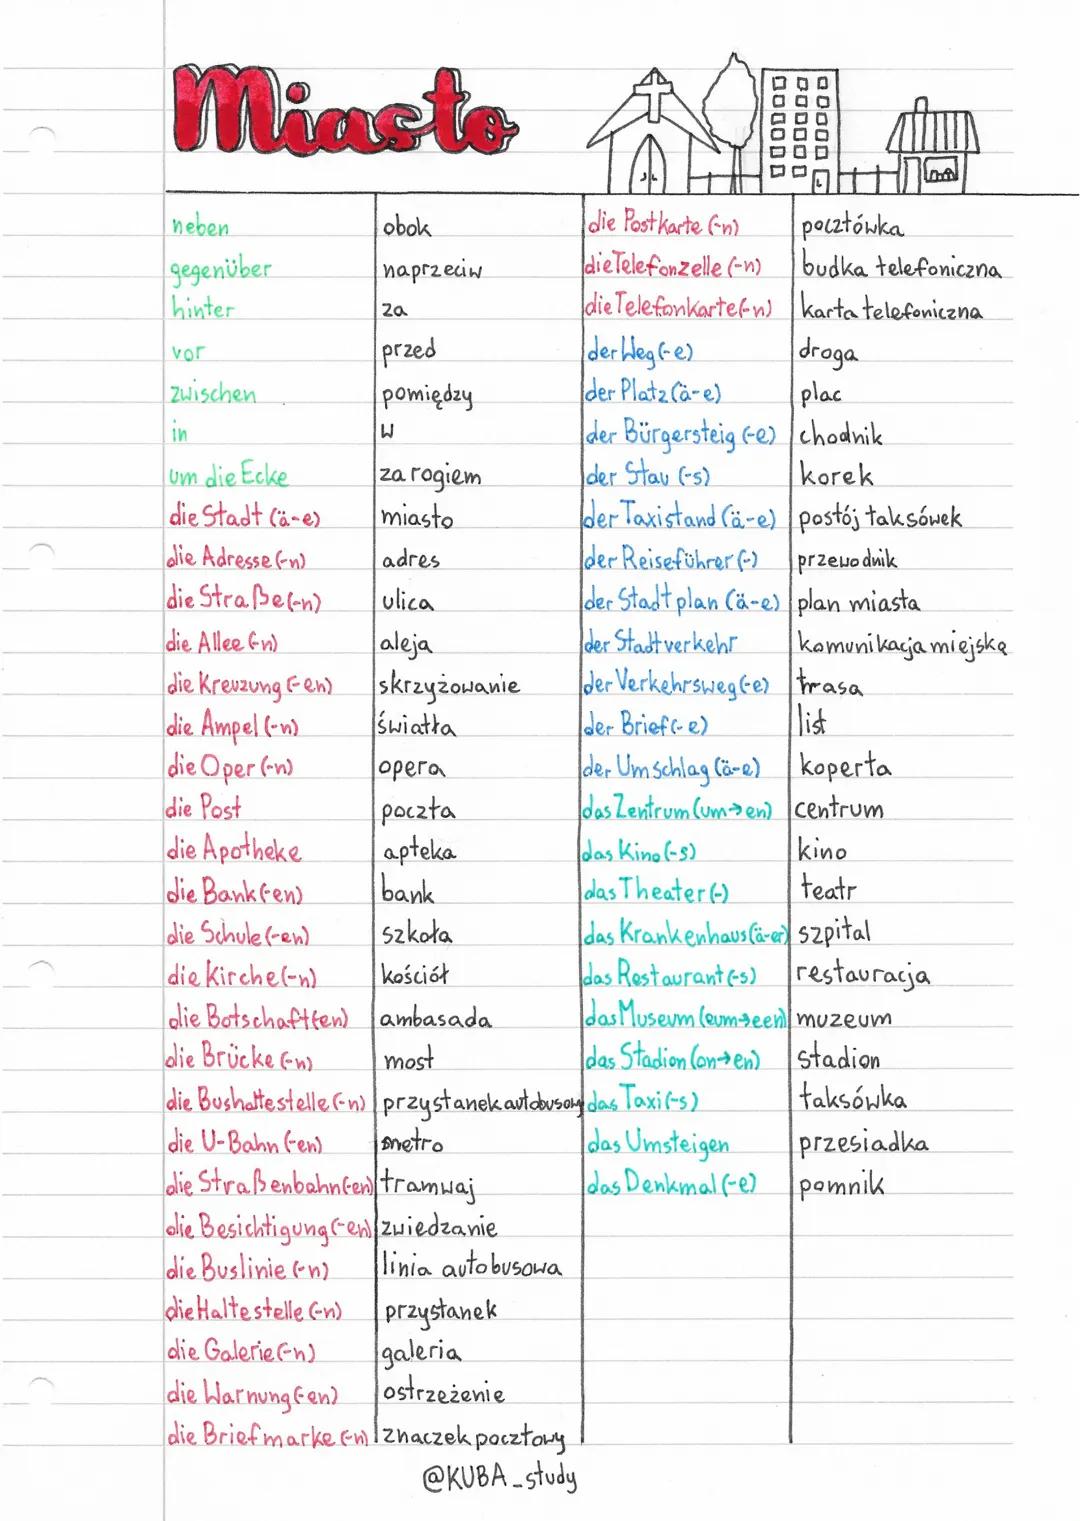 Miasto
neben obok
gegenüber naprzeciw
hinter za
vor przed
zwischen pomiędzy
in w
um die Ecke za rogiem
die Stadt (ä-e) miasto
die Adresse (-n) adres
die Straße (-n) ulica
die Allee (-n) aleja
die Kreuzung (-en) skrzyżowanie
die Ampel (-n) światła
die Oper (-n) opera
die Post poczta
die Apotheke apteka
die Bank (-en) bank
die Schule (-en) szkoła
die Kirche (-n) kościół
die Botschaft (en) ambasada
die Brücke (-n) most
die Bushaltestelle (-n) przystanek autobusowy
die U-Bahn (-en) metro
die Straßenbahn (-en) tramwaj
die Besichtigung (-en) zwiedzanie
die Buslinie (-n) linia autobusowa
die Haltestelle (-n) przystanek
die Galerie (-n) galeria
die Warnung (-en) ostrzeżenie
die Briefmarke (-n) znaczek pocztowy
die Postkarte (-n) pocztówka
die Telefonzelle (-n) budka telefoniczna
die Telefonkarte (-n) karta telefoniczna
der Weg (-e) droga
der Platz (ä-e) plac
der Bürgersteig (-e) chodnik
der Stau (-s) korek
der Taxistand (ä-e) postój taksówek
der Reiseführer (-) przewodnik
der Stadtplan (ä-e) plan miasta
der Stadtverkehr komunikacja miejska
der Verkehrsweg (-e) trasa
der Brief (-e) list
der Umschlag (ä-e) koperta
das Zentrum (um→en) centrum
das Kino (-s) kino
das Theater (-) teatr
das Krankenhaus (ä-er) szpital
das Restaurant (-s) restauracja
das Museum (eum→een) muzeum
das Stadion (on→en) stadion
das Taxi (-s) taksówka
das Umsteigen przesiadka
das Denkmal (-e) pomnik
@KUBA_study